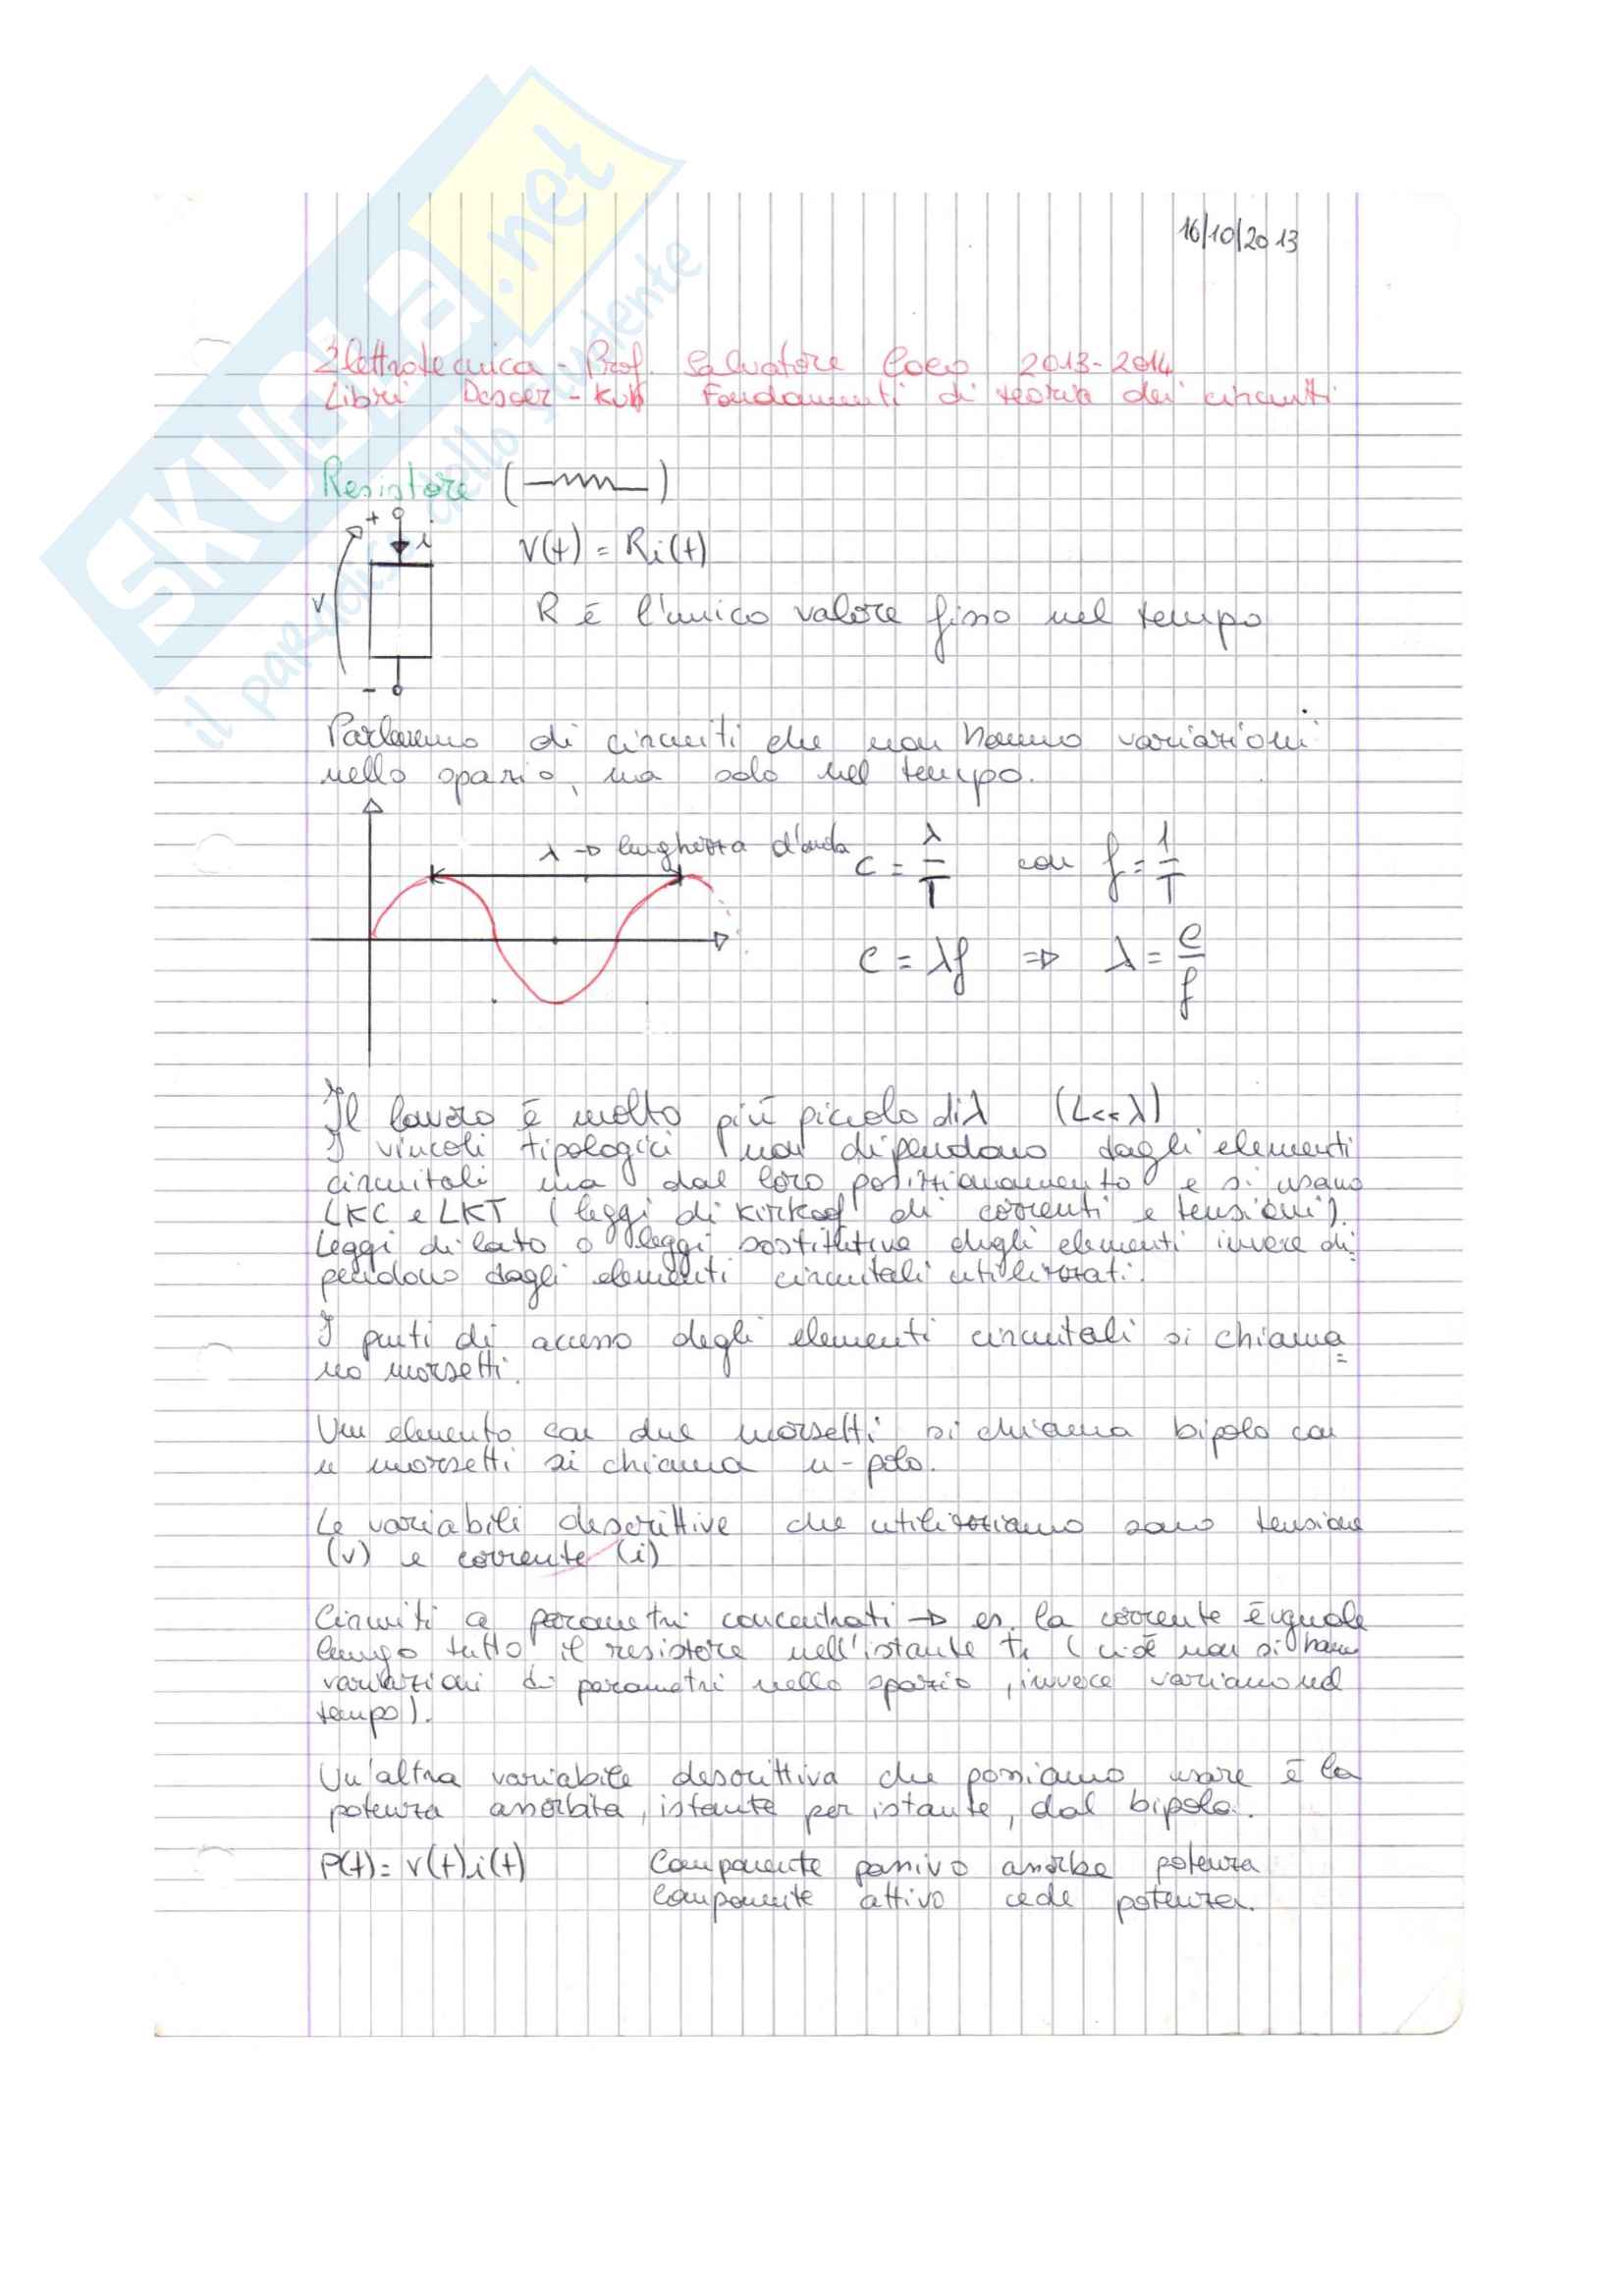 SKUOLA.net
il paradiso dello studente
16/10/2013
Elettrotecnica - Prof. Salvatore Coco 2013-2014
Libri Desoer - Kuh Fondamenti di teoria dei circuiti
Resistore ( )
+
i
V(t) = Ri(t)
v
R è l'unico valore fisso nel tempo
-
Parleremo di circuiti che non hanno variazioni
nello spazio, ma solo nel tempo.
λ → lunghezza d'onda
c = λ/T con f = 1/T
c = λf ⇒ λ = c/f
Il lavoro è molto più piccolo di λ (L<<λ)
I vincoli tipologici non dipendono dagli elementi
circuitali ma dal loro posizionamento e si usano
LKC e LKT (leggi di Kirkoof di correnti e tensioni).
Leggi di lato o leggi sostitutive degli elementi invece di=
pendono dagli elementi circuitali utilizzati.
I punti di accesso degli elementi circuitali si chiama=
no morsetti.
Un elemento con due morsetti si chiama bipolo con
n morsetti si chiama n-polo.
Le variabili descrittive che utilizziamo sono tensione
(v) e corrente (i)
Circuiti a parametri concentrati → es. la corrente è uguale
lungo tutto il resistore nell'istante t₁ (cioè non si hanno
variazioni di parametri nello spazio, invece variano nel
tempo).
Un'altra variabile descrittiva che possiamo usare è la
potenza assorbita, istante per istante, dal bipolo.
P(t) = v(t)i(t) Componente passivo assorbe potenza
Componente attivo cede potenza.